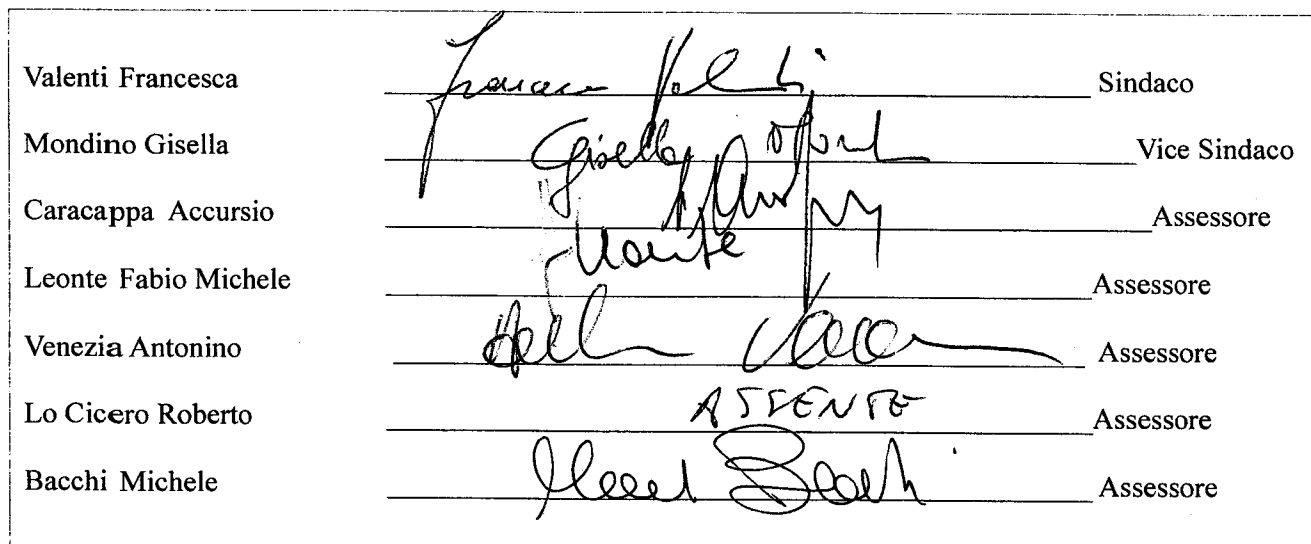 Valenti Francesca Francesca Valenti Sindaco
Mondino Gisella Gisella Mond Vice Sindaco
Caracappa Accursio Assessore
Leonte Fabio Michele Assessore
Venezia Antonino Assessore
Lo Cicero Roberto ASSENTE Assessore
Bacchi Michele Assessore